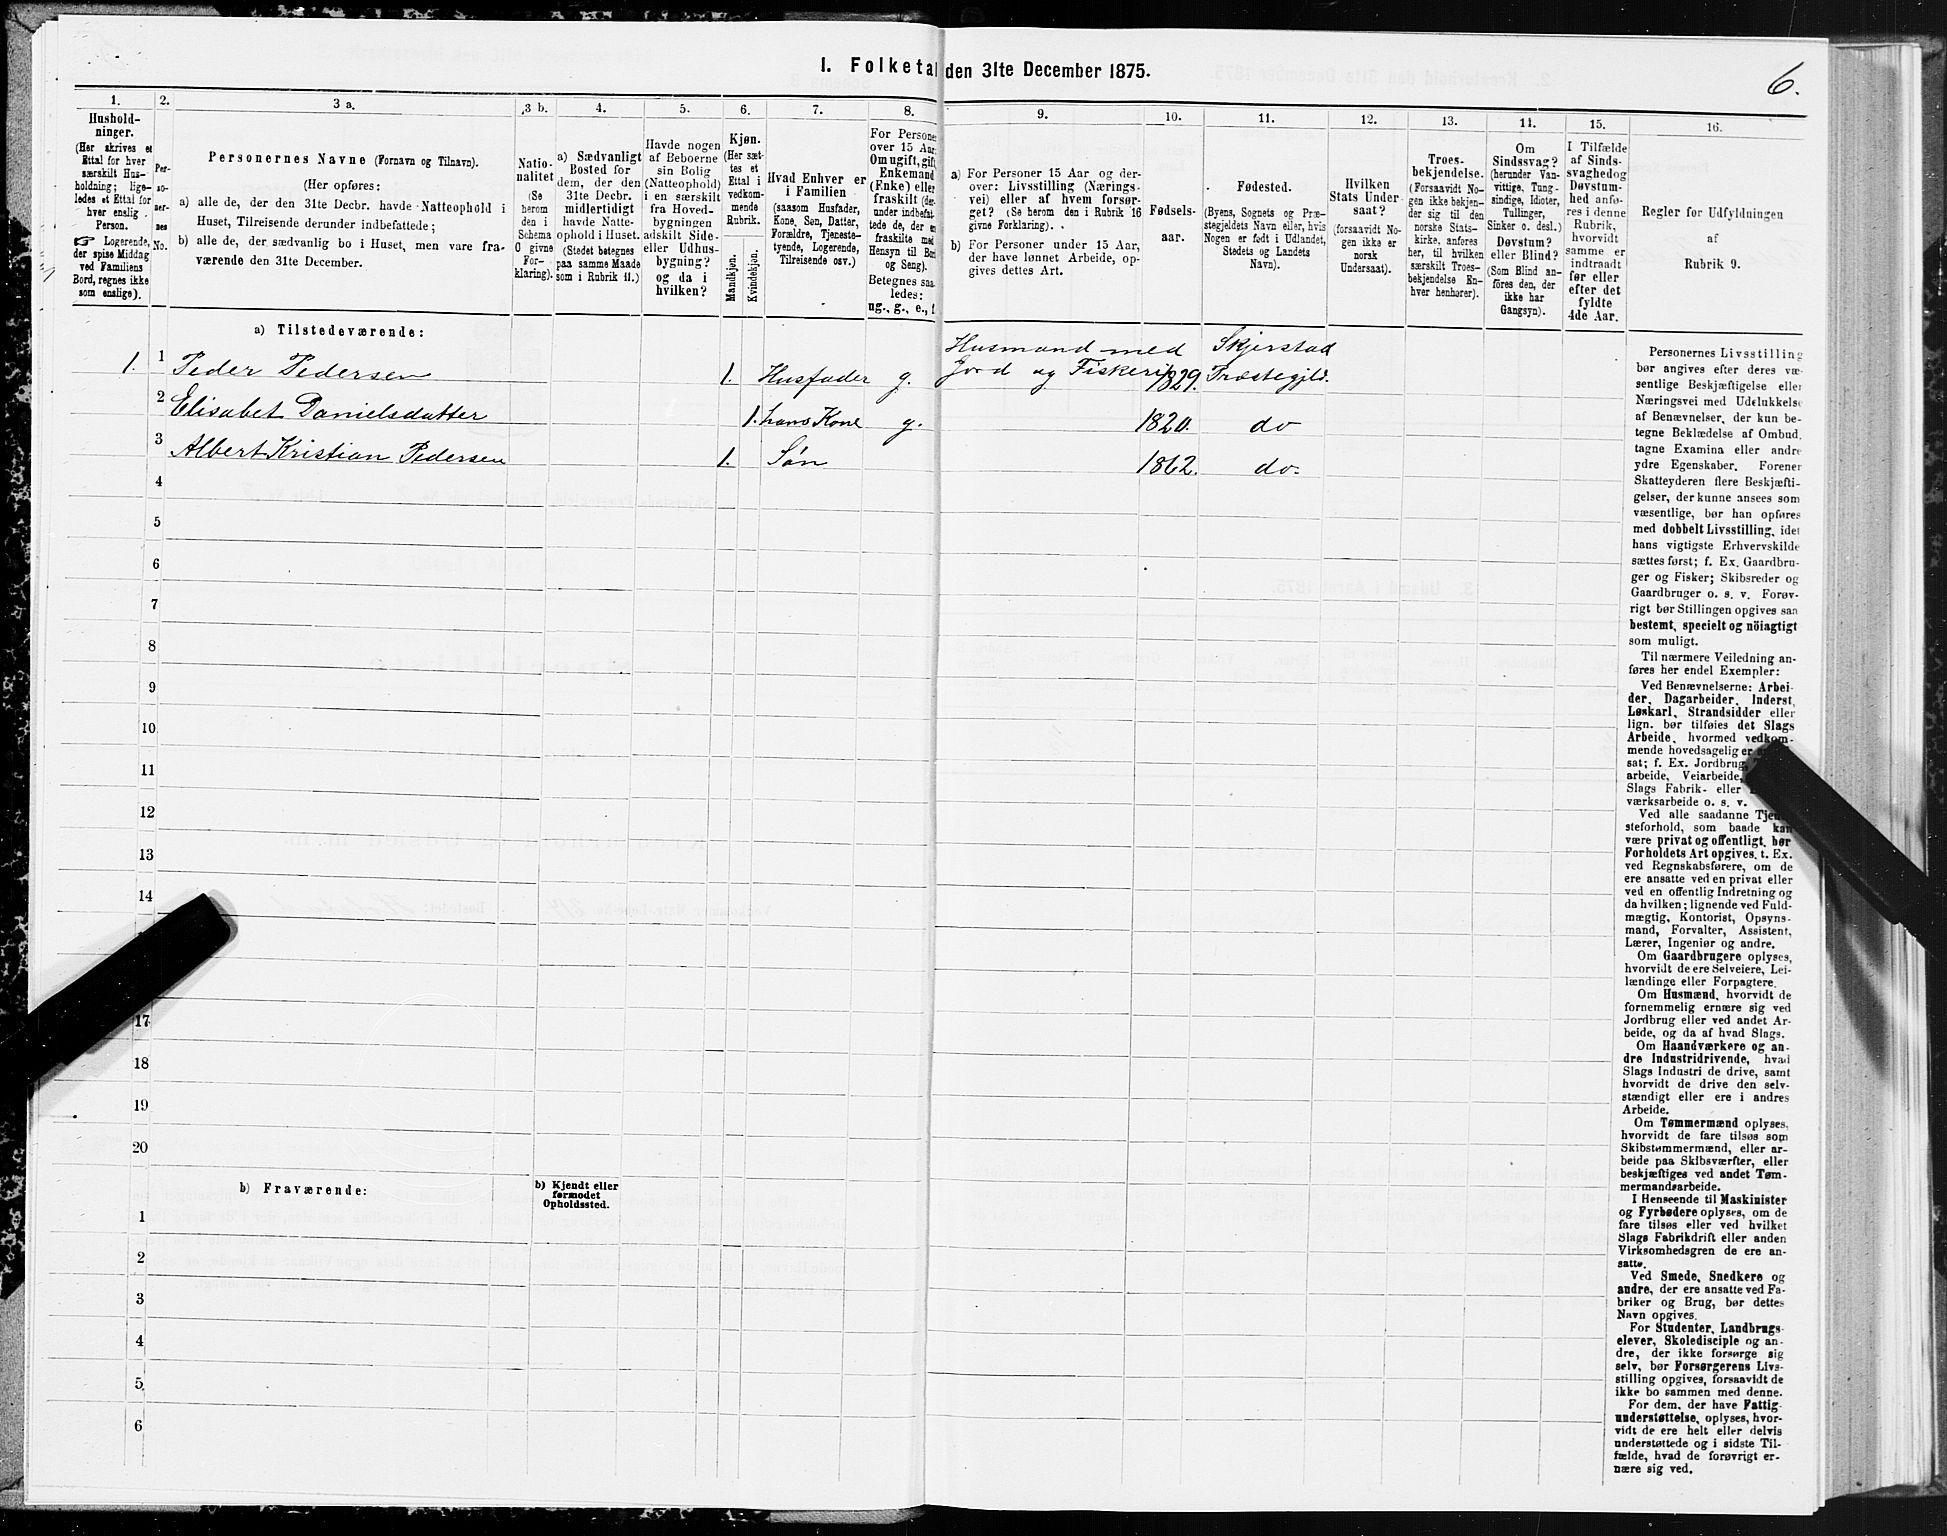 I. Folketa den 31te December 1875.
6.
1.
Hushold-
ninger.
(Her skrives et
Ettal for hver
særskilt Hus-
holdning; lige-
ledes et Ettal for
hver enslig
Person.
☞ Logerende,
der spise Middag
ved Familiens
Bord, regnes ikke
som enslige).
2.
Per-
so-
ner-
nes
No.
3 a.
Personernes Navne (Fornavn og Tilnavn).
(Her opføres:
a) alle de, der den 31te Decbr. havde Natteophold i
Huset, Tilreisende derunder indbefattede;
b) alle de, der sædvanlig bo i Huset, men vare fra-
værende den 31te December.
3 b.
Natio-
nalitet
(Se
herom
den i
Schema
O givne
For-
klaring).
4.
a) Sædvanligt
Bosted for
dem, der den
31te Decbr.
midlertidigt
havde Natte-
ophold i Huset.
(Stedet betegnes
paa samme Maade
som i Rubrik 11.)
5.
Havde nogen
af Beboerne
sin Bolig
(Natteophold)
i en særskilt
fra Hoved-
bygningen
adskilt Side-
eller Udhus-
bygning?
og da i
hvilken?
6.
Kjøn.
(Her sæt-
tes et
Ettal i
vedkom-
mende
Rubrik.
Mandkjøn.
Kvindekjøn.
7.
Hvad Enhver er
i Familien
(saasom Husfader,
Kone, Søn, Datter,
Forældre, Tjeneste-
tyende, Logerende,
Tilreisende osv.)
8.
For Persone
over 15 Aar:
Om ugift, gift,
Enkemand
(Enke) eller
fraskilt (der-
under indbefat-
tede de, der e
fraskilte med
Hensyn til Bo
og Seng).
Betegnes saa
ledes:
ug., g., e., f
9.
a) For Personer 15 Aar og der-
over: Livsstilling (Nærings-
vei) eller af hvem forsør-
get? (Se herom den i Rubrik 16
givne Forklaring).
b) For Personer under 15 Aar,
der have lønnet Arbeide, op-
gives dettes Art.
10.
Fødsels-
aar.
11.
Fødested.
(Byens, Sognets og Præ-
stegjeldets Navn eller, hvis
Nogen er født i Udlandet,
Stedets og Landets
Navn).
12.
Hvilken
Stats Under-
saat?
(forsaavidt No-
gen ikke er
norsk
Undersaat).
13.
Troes-
bekjendelse.
(Forsaavidt No-
gen ikke bekjen-
der sig til den
norske Stats-
kirke, anføres
her, til hvilken
særskilt Troes-
bekjendelse En-
hver henhører).
14.
Om
Sindssvag?
(herunder Van-
vittige, Tung-
sindige, Idioter,
Tullinger,
Sinker o. desl.)
Døvstum?
eller Blind?
(Som Blind an-
føres den, der
ikke har
Gangsyn).
15.
I Tilfælde
af Sinds-
svaghed og
Døvstum-
hed anfø-
res i denne
Rubrik,
hvorvidt
samme er
indtraadt
før eller
efter det
fyldte
4de Aar.
16.
Regler for Udfyldningen
af
Rubrik 9.
a) Tilstedeværende:
Husmand med Skjerstad
1. 1 Peder Pedersen 1. Husfader g. Jord og Fiskeri 1829. Præstegjld.
2 Elisabet Danielsdatter 1. hans Kone g. 1820. do
3 Albert Kristian Pedersen 1. Søn 1862. do.
4
5
6
7
8
9
10
11
12
13
14
17
18
19
20
b) Fraværende:
b) Kjendt eller
formodet
Opholdssted.
1
2
3
4
5
6
Personernes Livsstilling
bør angives efter deres væ-
sentlige Beskjæftigelse eller
Næringsvei med Udelukkelse
af Benævnelser, der kun be-
tegne Beklædelse af Ombud,
tagne Examina eller andre
ydre Egenskaber. Forener
Skatteyderen flere Beskjæfti-
gelser, der kunne ansees som
væsentlige, bør han opføres
med dobbelt Livsstilling, idet
hans vigtigste Erhvervskilde
sættes først; f. Ex. Gaardbru-
ger og Fisker; Skibsreder og
Gaardbruger o. s. v. Forøv-
rigt bør Stillingen opgives saa
bestemt, specielt og nöiagtigt
som muligt.
Til nærmere Veiledning an-
føres her endel Exempler:
Ved Benævnelserne: Arbei-
der, Dagarbeider, Inderst,
Løskarl, Strandsidder eller
lign. bør tilføies det Slags
Arbeide, hvormed vedkom-
mende hovedsagelig er
sat; f. Ex. Jordbrug,
arbeide, Veiarbeide,
Slags Fabrik- eller
værksarbeide o. s. v.
Ved alle saadanne Tjen
steforhold, som baade kan
være privat og offentligt, bør
Forholdets Art opgives, t. Ex.
ved Regnskabsførere, om de
ere ansatte ved en privat eller
ved en offentlig Indretning og
da hvilken; lignende ved Fuld-
mægtig, Kontorist, Opsyns-
mand, Forvalter, Assistent,
Lærer, Ingeniør og andre.
Om Gaardbrugere oplyses,
hvorvidt de ere Selveiere, Lei-
lændinge eller Forpagtere.
Om Husmænd, hvorvidt de
fornemmelig ernære sig ved
Jordbrug eller ved andet Ar-
beide, og da af hvad Slags.
Om Haandværkere og an-
dre Industridrivende, hvad
Slags Industri de drive, samt
hvorvidt de drive den selv-
stændigt eller ere i andres
Arbeide.
Om Tømmermænd oplyses,
hvorvidt de fare tilsøs som
Skibstømmermænd, eller ar-
beide paa Skibsværfter, eller
beskjæftiges ved andet Tøm-
mermandsarbeide.
I Henseende til Maskinister
og Fyrbødere oplyses, om de
fare tilsøs eller ved hvilket
Slags Fabrikdrift eller anden
Virksomhedsgren de ere an-
satte.
Ved Smede, Snedkere og
andre, der ere ansatte ved Fa-
briker og Brug, bør dettes
Navn opgives.
For Studenter, Landbrugs-
elever, Skoledisciple og an-
dre, der ikke forsørge sig
selv, bør Forsørgerens Livs-
stilling opgives, forsaavidt de
ikke bo sammen med denne.
For dem, der have Fattig-
understøttelse, oplyses, hvor-
vidt de ere helt eller delvis
understøttede og i sidste Til-
fælde, hvad de forøvrigt er-
nære sig ved.